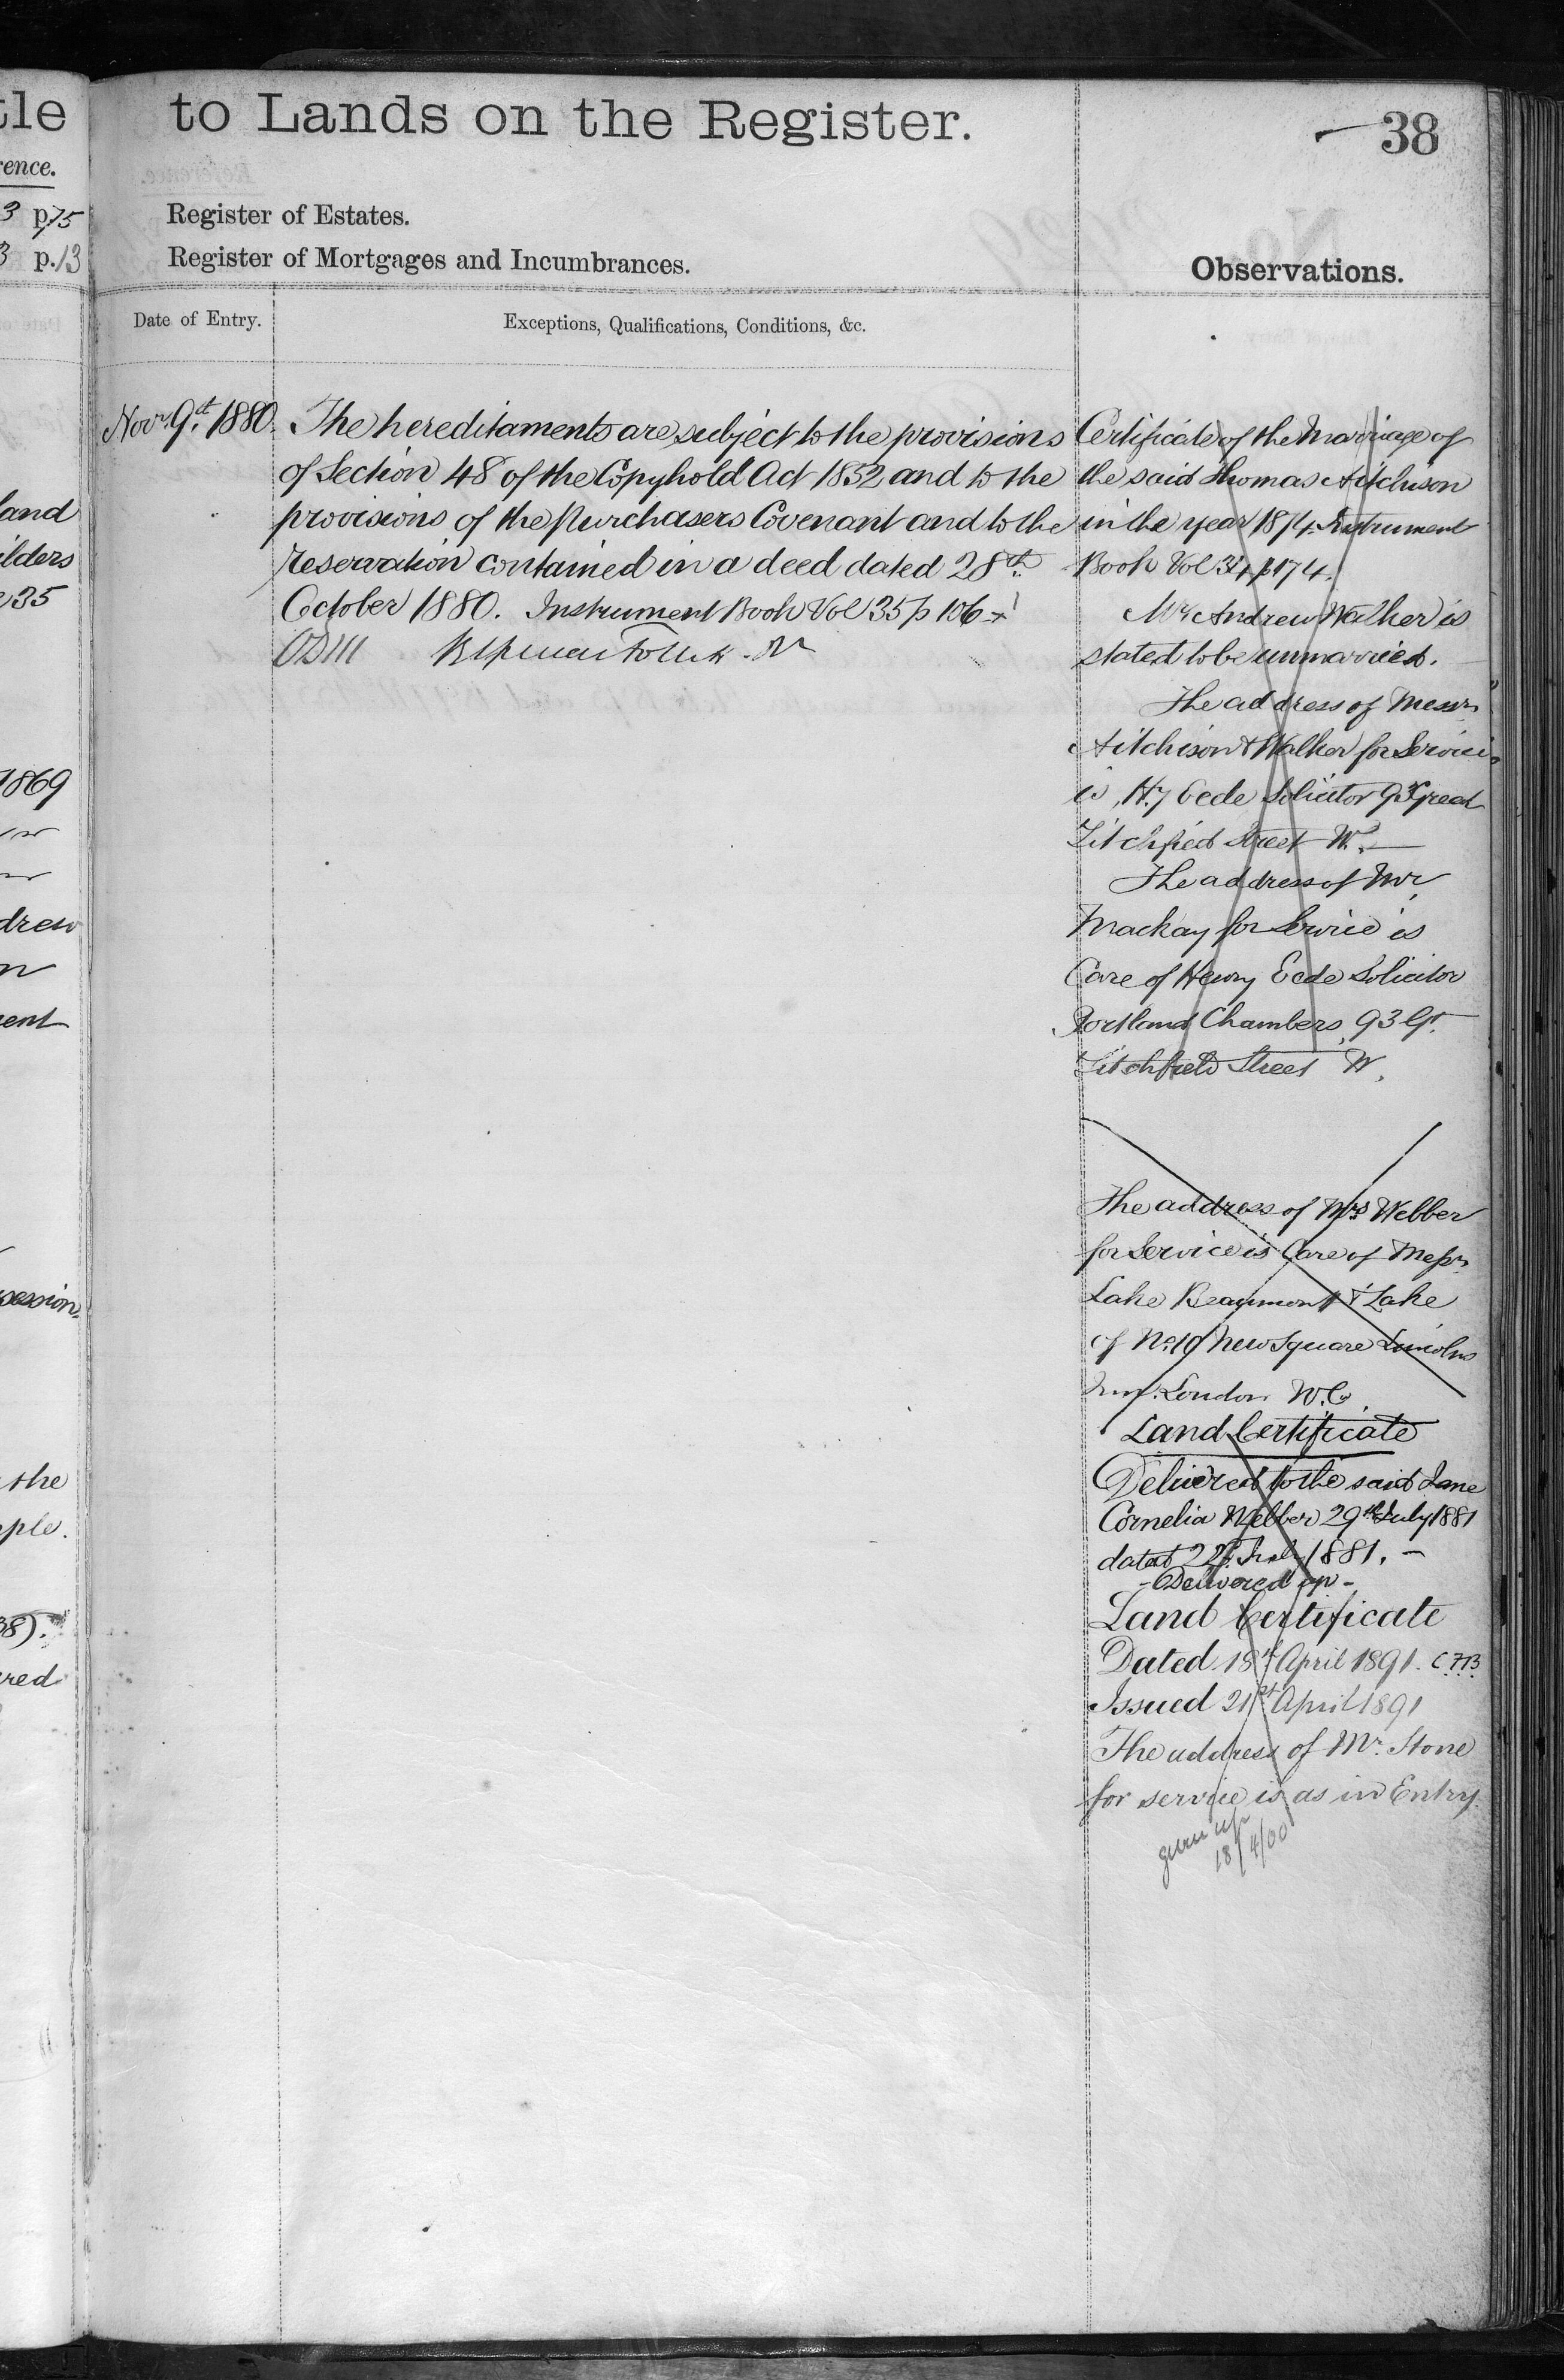 tle
to Lands on the Register.
38
rence.
3 p75
3 p.13
Register of Estates.
Register of Mortgages and Incumbrances.
Observations.
Date of Entry.
Exceptions, Qualifications, Conditions, &c.
Novr. 9th 1880.
The hereditaments are subject to the provisions
of Section 48 of the Copyhold Act 1852 and to the
provisions of the Purchasers Covenant and to the
reservation contained in a deed dated 28th
October 1880. Instrument Book Vol 35 p 106
Certificate of the Marriage of
the said Thomas Aitchison
in the year 1874. Instrument
Book Vol 34 p 174.
Mr Andrew Walker is
stated to be unmarried.
The address of Messrs
Aitchison & Walker for Service
is Hy Eede Solicitor 93 Great
Titchfied Street W.
The address of Mr
Mackay for Service is
Care of Henry Eede Solicitor
Portland Chambers, 93 Gt.
Titchfield Street W.
The address of Mrs Webber
for Service is Care of Messrs
Lake Beaumont & Lake
of No. 10 New Square Lincolns
Inn. London W.C.
Land Certificate
Delivered to the said Jane
Cornelia Webber 29th July 1881
dated 22d July 1881. -
- Delivered up -
Land Certificate
Dated 18th April 1891. C.F.B.
Issued 21st April 1891
The address of Mr. Stone
for service is as in Entry.
given up
18/4/00
land
ilders
35
1869
drew
n
ent
session
the
ple.
38).
red